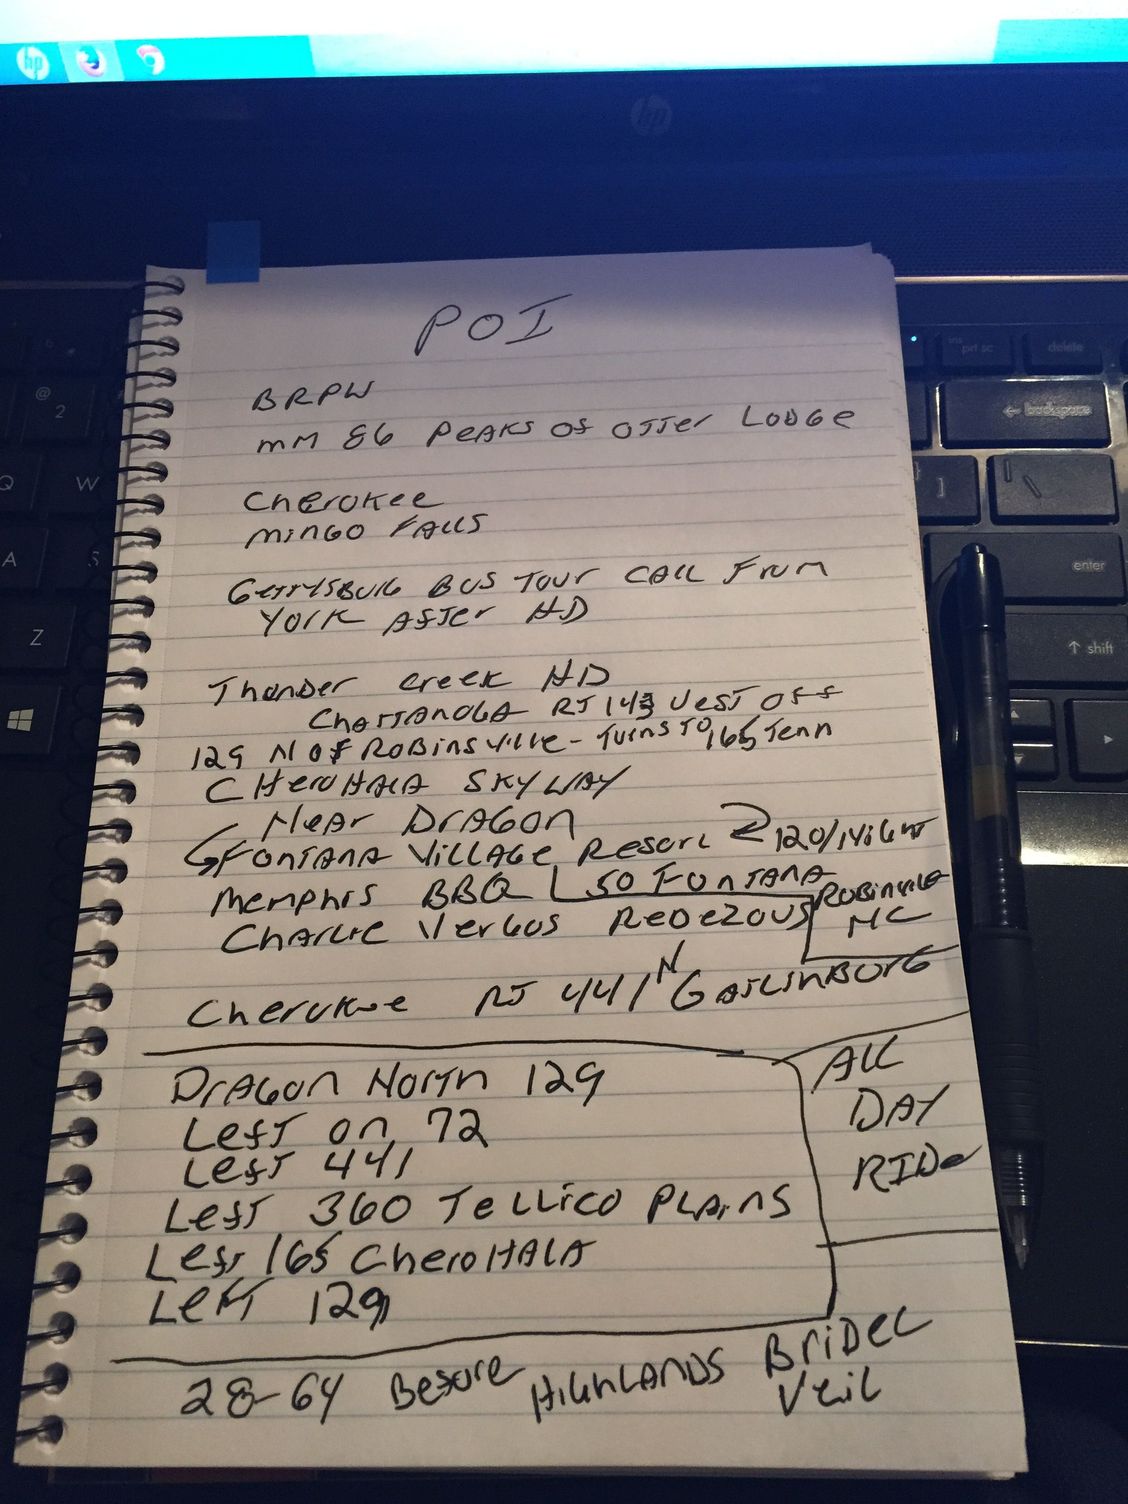 POI
BRPW
MM 86 PEAKS OF OTTER LODGE
CHEROKEE
MINGO FALLS
GETTYSBURG BUS TOUR CALL FROM
YORK AFTER HD
THUNDER CREEK HD
CHATTANOGA RT 143 WEST OFF
129 N OF ROBINSVILLE - TURNS TO 165 TENN
CHEROHALA SKYWAY
NEAR DRAGON
FONTANA VILLAGE RESORT 120/NIGHT
MEMPHIS BBQ 50 FONTANA
ROBINVILLE
NC
CHARLIE VERGOS REDEZOUS
CHEROKEE RT 441 N GATLINBURG
DRAGON NORTH 129
LEFT ON 72
LEFT 441
LEFT 360 TELLICO PLAINS
LEFT 165 CHEROHALA
LEFT 129
ALL
DAY
RIDE
28-64 BEFORE HIGHLANDS BRIDEL
VEIL
hp
hp
prt sc
delete
backspace
enter
shift
@
2
Q
W
A
S
Z